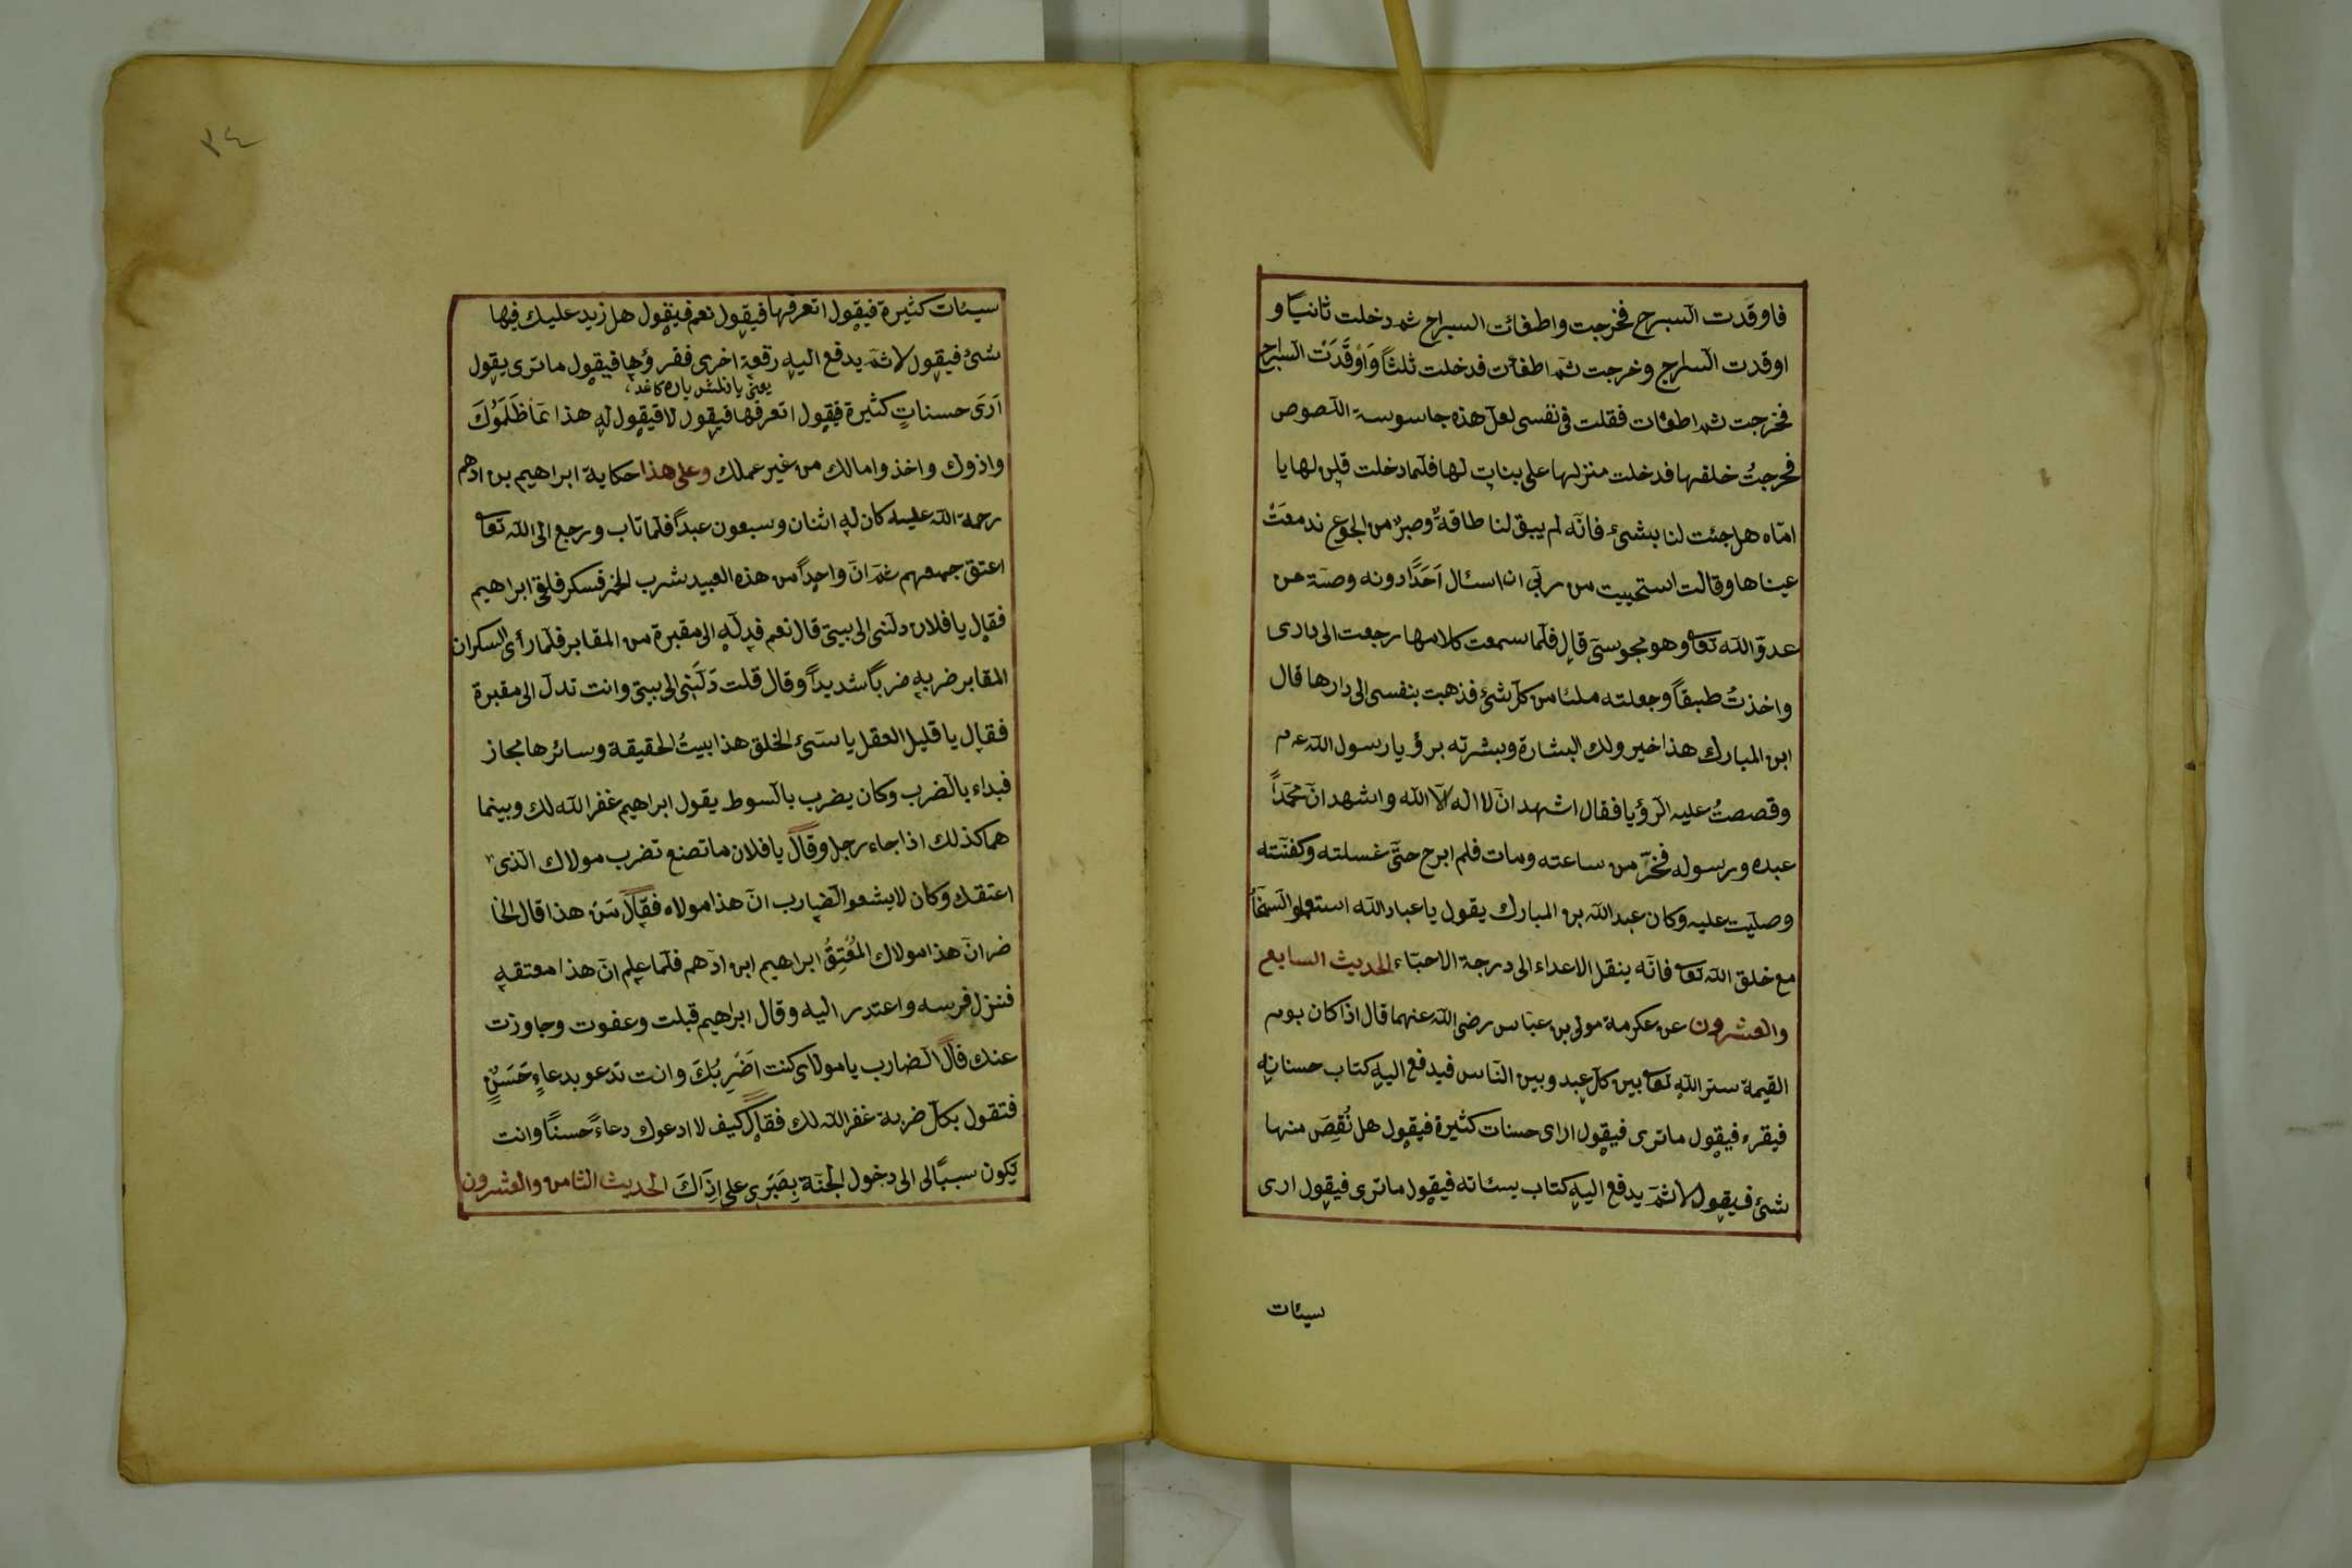 فاوقدت السرج فخرجت واطفائت السراج ثمّ دخلت ثانيا و
اوقدت السارج وخرجت ثمّ اطفات فدخلت ثلثاً وَاَوْقَدَتْ السارج
فخرجت ثمّ اطفات فقلت فى نفسى لعلّ هذه جاسوسة اللصوص
فخرجتُ خلفها فدخلت منزلها على بنات لها فلمّا دخلت قلن لها يا
امّاه هل جئت لنا بشئ فانّه لم يبق لنا طاقةٌ وصبرٌ من الجوع فدمعَتْ
عيناها وقالت استحييت من ربّى ان اسئال اَحَدًا دونه وصّة من
عدوّ اللّه تعا وهو مجوسىّ قال فلمّا سمعت كلامها رجعت الى دارى
واخذتُ طبقاً وجعلته ملئا من كلّ شئ فذهبت بنفسى الى دارها قال
ابن المبارك هذا خير ولك البشارة وبشرته برؤيا رسول اللّه عم
وقصصتُ عليه الرؤيا فقال اشهد انّ لا اله الّا اللّه واشهد انّ محمّداً
عبده ورسوله فخرّ من ساعته ومات فلم ابرح حتّى غسلته وكفنّته
وصلّيت عليه وكان عبد اللّه بن المبارك يقول يا عباد اللّه استعملوا السخآ
مع خلق اللّه تعا فانّه ينقل الاعداء الى درجة الاحبّاء الحديث السابع
والعشرون عن عكرمة مولى بن عبّاس رضى اللّه عنهما قال اذا كان يوم
القيمة ستر اللّه تعا بين كلّ عبد وبين النّاس فيدفع اليه كتاب حسناته
فيقرء فيقول ماترى فيقول اراى حسنات كثيرة فيقول هل نُقِصَ منها
شئ فيقول لا ثمّ يدفع اليه كتاب سئاته فيقول ماترى فيقول ارى
سيئات
٣٤
سيئات كثيرة فيقول اتعرفها فيقول نعم فيقول هل زيد عليك فيها
شئ فيقول لا ثمّ يدفع اليه رقعة اخرى فقرؤها فيقول ماترى يقول
يعنى يازلمش پاره كاغد
اَرَى حسناتٍ كثيرة فيقول اتعرفها فيقول لا فيقول له هذا ممّا ظَلَمُوكَ
واذوك واخذوا مالك من غير عملك وعلى هذا حكاية ابراهيم بن ادهم
رحمة اللّه عليه كان له اثنان وسبعون عبداً فلمّا تاب ورجع الى اللّه تعا
اعتق جميعهم ثمّ انّ واحداً من هذه العبيد شرب الخمر فسكر فلقى ابراهيم
فقال يا فلان دلّنى الى بيتى قال نعم فدلّه الى مقبرة من المقابر فلمّا رأى السكران
المقابر ضربه ضرباً شديداً وقال قلت دَلَّنِى الى بيتى وانت تدلّ الى مقبرة
فقال يا قليل العقل يا سَىّئ الخلق هذا بيتُ الحقيقة وسائرها مجاز
فبداء بالضرب وكان يضرب بالسوط يقول ابراهيم غفر اللّه لك وبينما
هما كذلك اذا جاء رجل وقال يا فلان ما تصنع تضرب مولاك الّذى
اعتقك وكان لا يشعر الضارب انّ هذا مولاه فقال مَنْ هذا قال الحا
ضر انّ هذا مولاك المُعْتِقُ ابراهيم ابن ادهم فلمّا علم انّ هذا معتقه
فنزل فرسه واعتذر اليه وقال ابراهيم قبلت وعفوت وجاوزت
عنك قال الضارب يا مولاى كنت اَضْرِبُكَ وانت تدعو بدعاءٍ حَسَنٍ
فتقول بكلّ ضربة غفر اللّه لك فقال كيف لا ادعوك دعاءً حسنًا وانت
تكون سببًا لى الى دخول الجنّة بِصَبْرِى على اِذَاكَ الحديث الثامن والعشرون